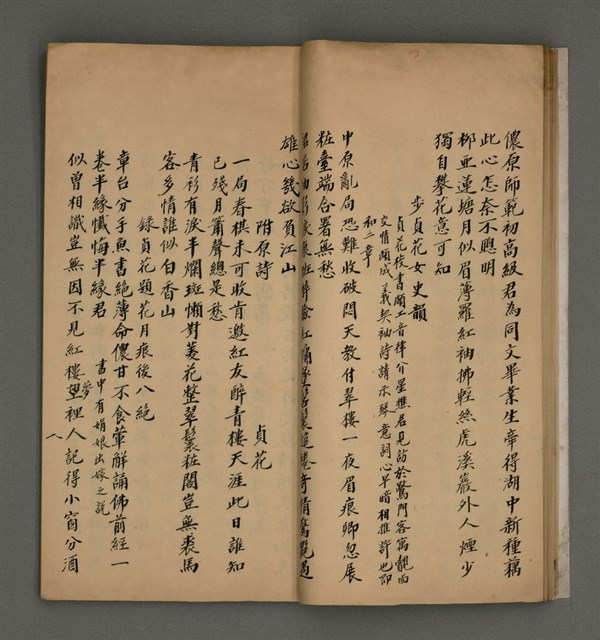 儂原師範初高級君為同文畢業生幸得湖中新種藕
此心怎奈不聰明
柳亞蓮塘月似眉薄羅紅袖拂輕絲虎溪巖外人煙少
獨自攀花意可知
步貞花女史韻
貞花校書頗工音律介星樵君見訪於鷺門客寓靚面
交情頗成義契袖詩請示琴意詞心早暗相推許也即
和二章
中原亂局恐難收破悶天教付翠樓一夜眉痕卿忽展
粧臺端合署無愁
雄心幾欲負江山
附原詩
貞花
一局春棋未可收肯邀紅友醉青樓天涯此日誰知
已殘月簫聲總是愁
青衫有淚半斕斑懶對菱花整翠鬟粧閣豈無裘馬
客多情誰似白香山
錄貞花題花月痕後八絕
章台分手魚書絕薄命儂甘不食葷解誦佛前經一
卷半緣懺悔半緣君
書中有娟娘出嫁之說
似曾相識豈無因不見紅樓夢裡人記得小窗分酒